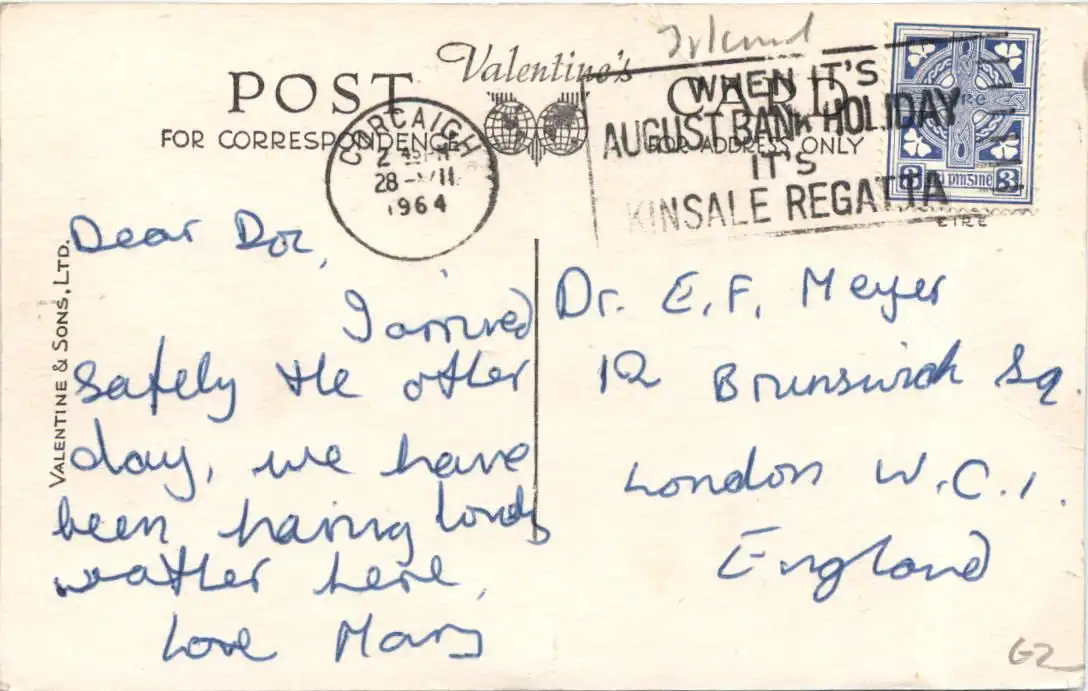 Ireland
Valentine's
POST CARD
FOR CORRESPONDENCE
FOR ADDRESS ONLY
CORCAIGH
2 45 PM
28-VII
1964
WHEN IT'S
AUGUST BANK HOLIDAY
IT'S
KINSALE REGATTA
3 3
EIRE
VALENTINE & SONS, LTD.
Dear Doc,
I arrived
safely the other
day, we have
been having lovely
weather here,
Love Mary
Dr. E. F. Meyer
12 Brunswick Sq.
London W.C.1.
England
G2